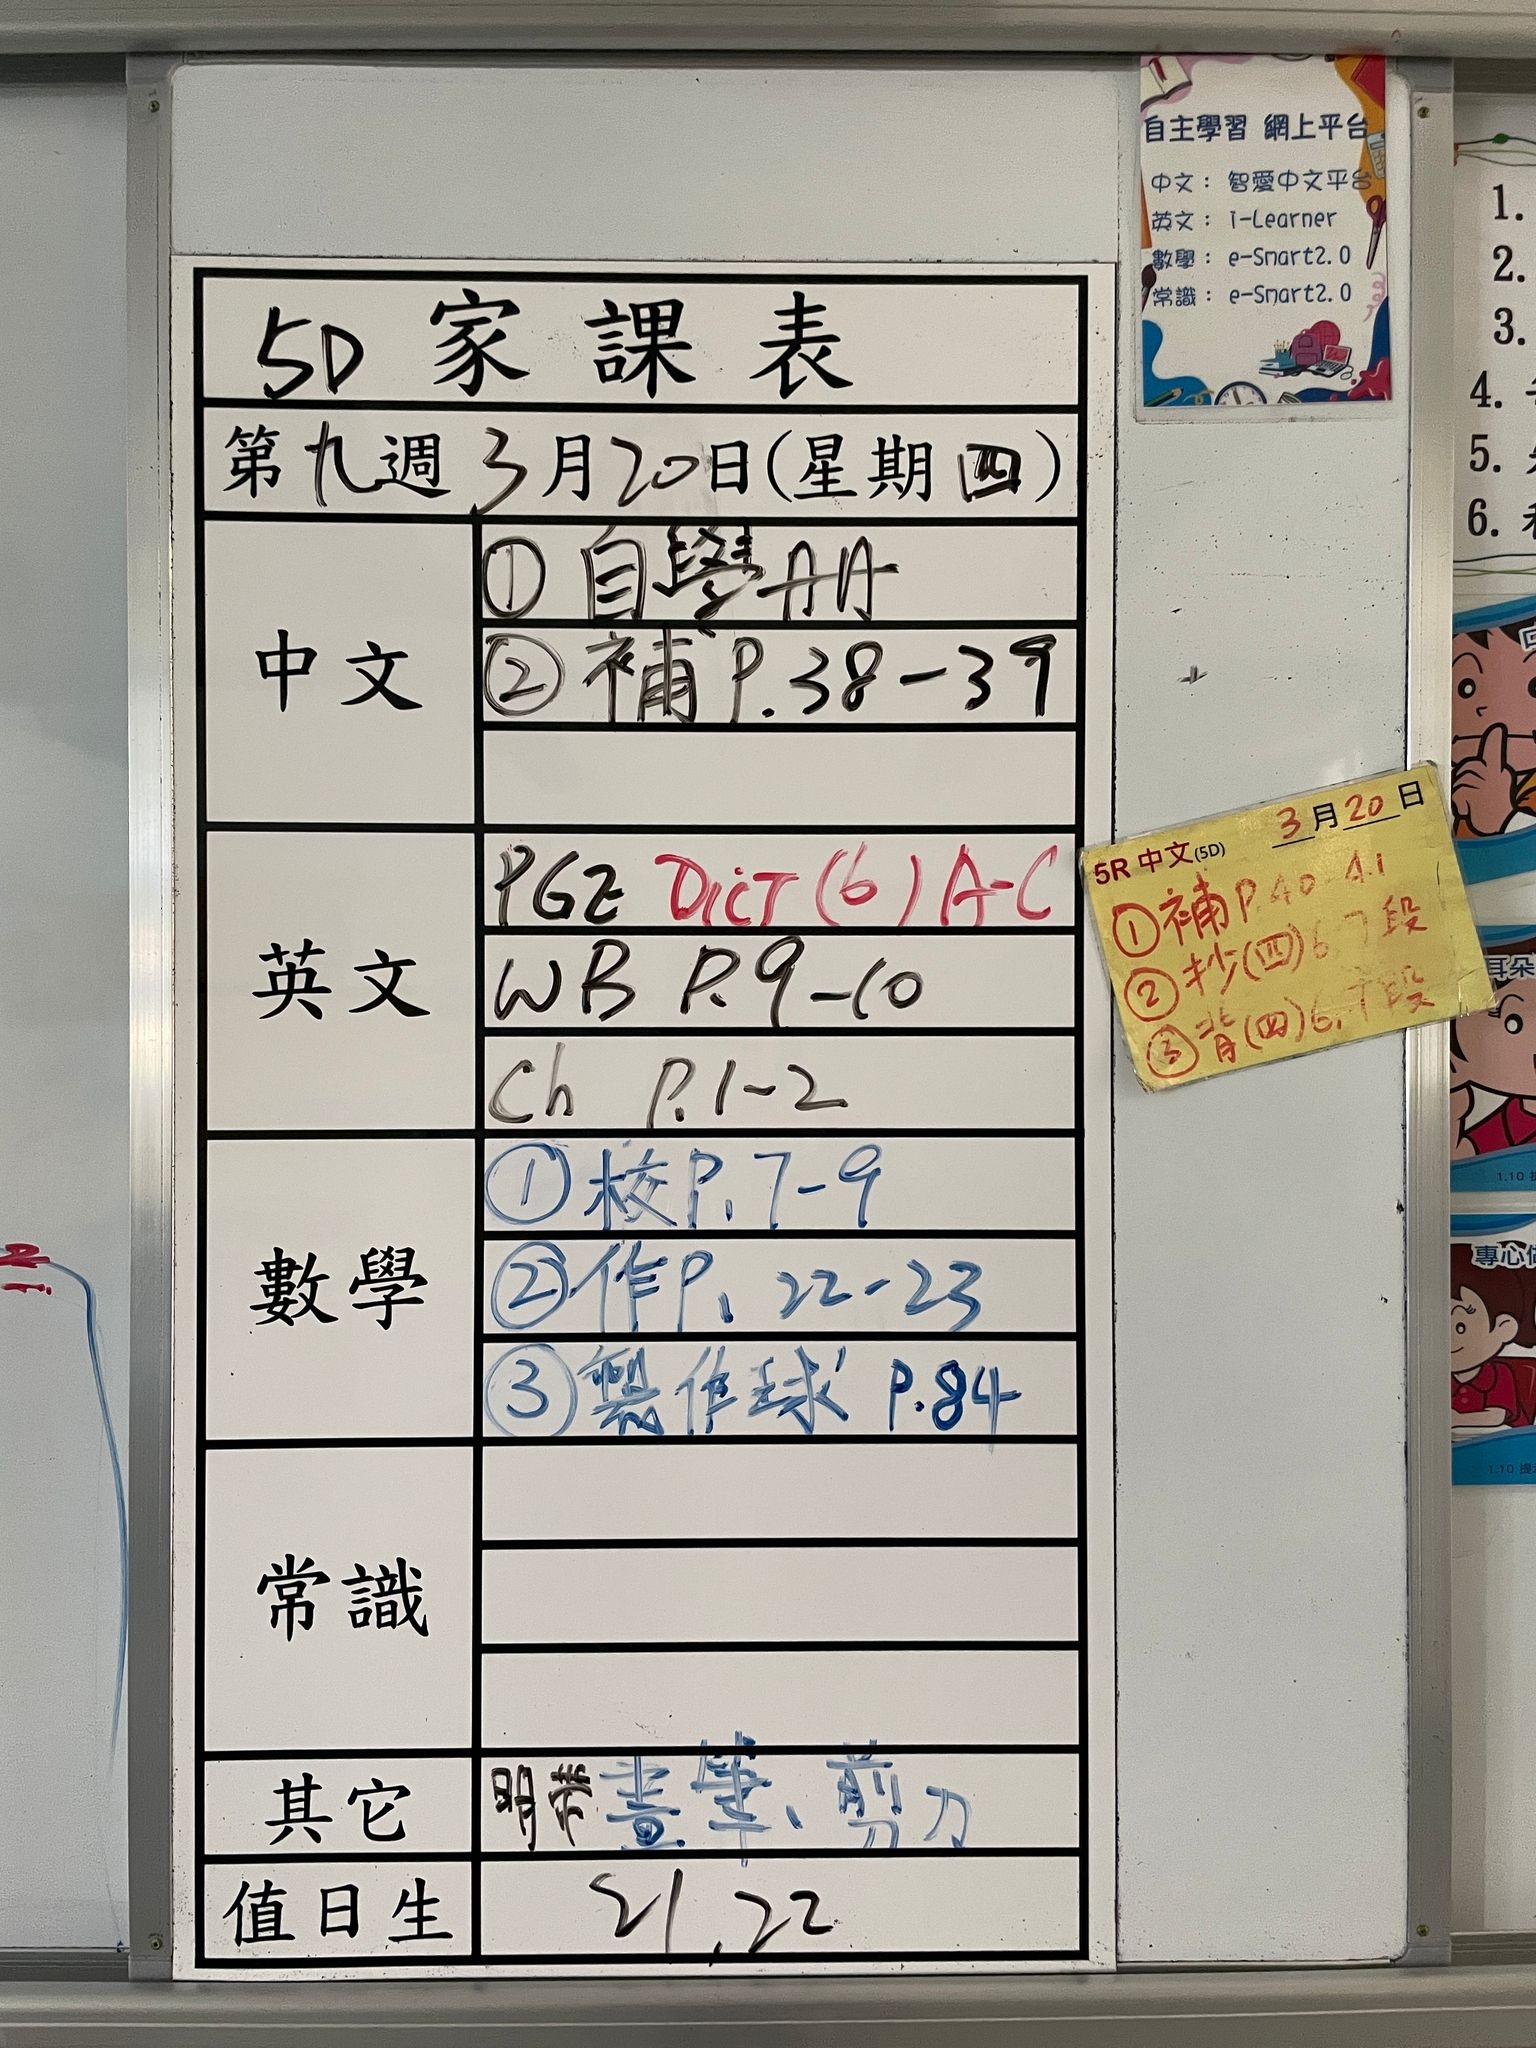 自主學習 網上平台
中文： 智愛中文平台
英文： i-Learner
數學： e-Smart2.0
常識： e-Smart2.0
5D 家課表
第九週 3月20日(星期四)
中文
① 自學冊
② 補 P.38-39
英文
PGE Dict (6) A-C
WB P.9-10
Ch P.1-2
數學
① 校 P.7-9
② 作 P. 22-23
③ 製作球 P.84
常識
其它
明帶畫筆、剪刀
值日生
21,22
3月20日
5R 中文(5D)
① 補 P.40-41
② 抄(四)6,7段
③ 背(四)6,7段
1.
2.
3.
4.
5.
6.
耳朵
1.10
專心
1.10